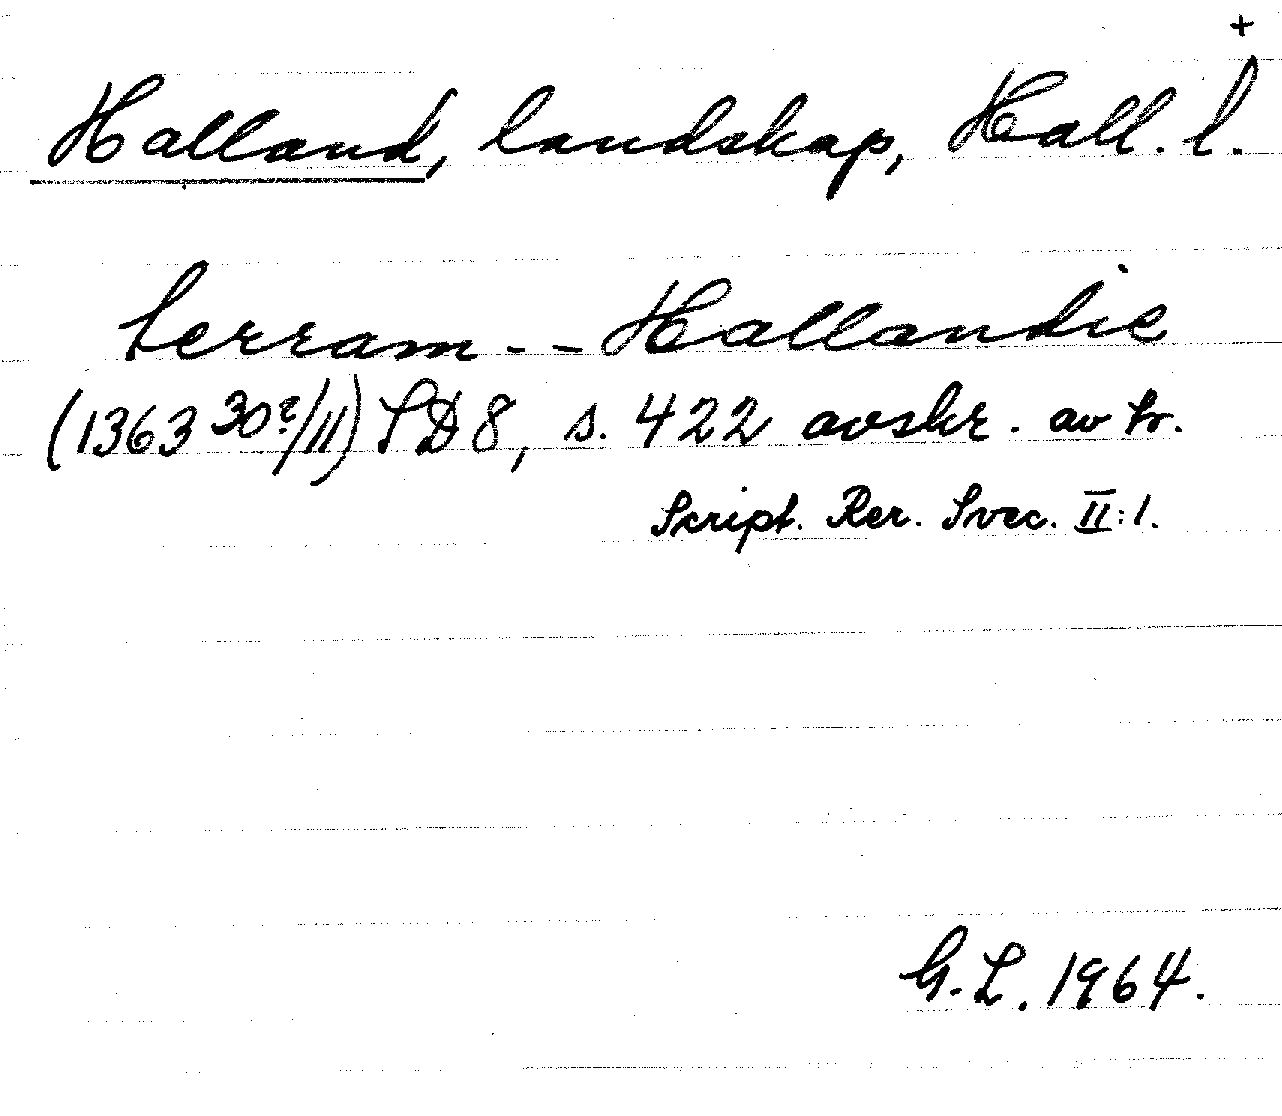 +
Halland, landskap, Hall. l.
terram - - Hallandie
(1363 30?/11) SD 8, s. 422 avskr. av tr.
Script. Rer. Svec. II:1.
G. L. 1964.